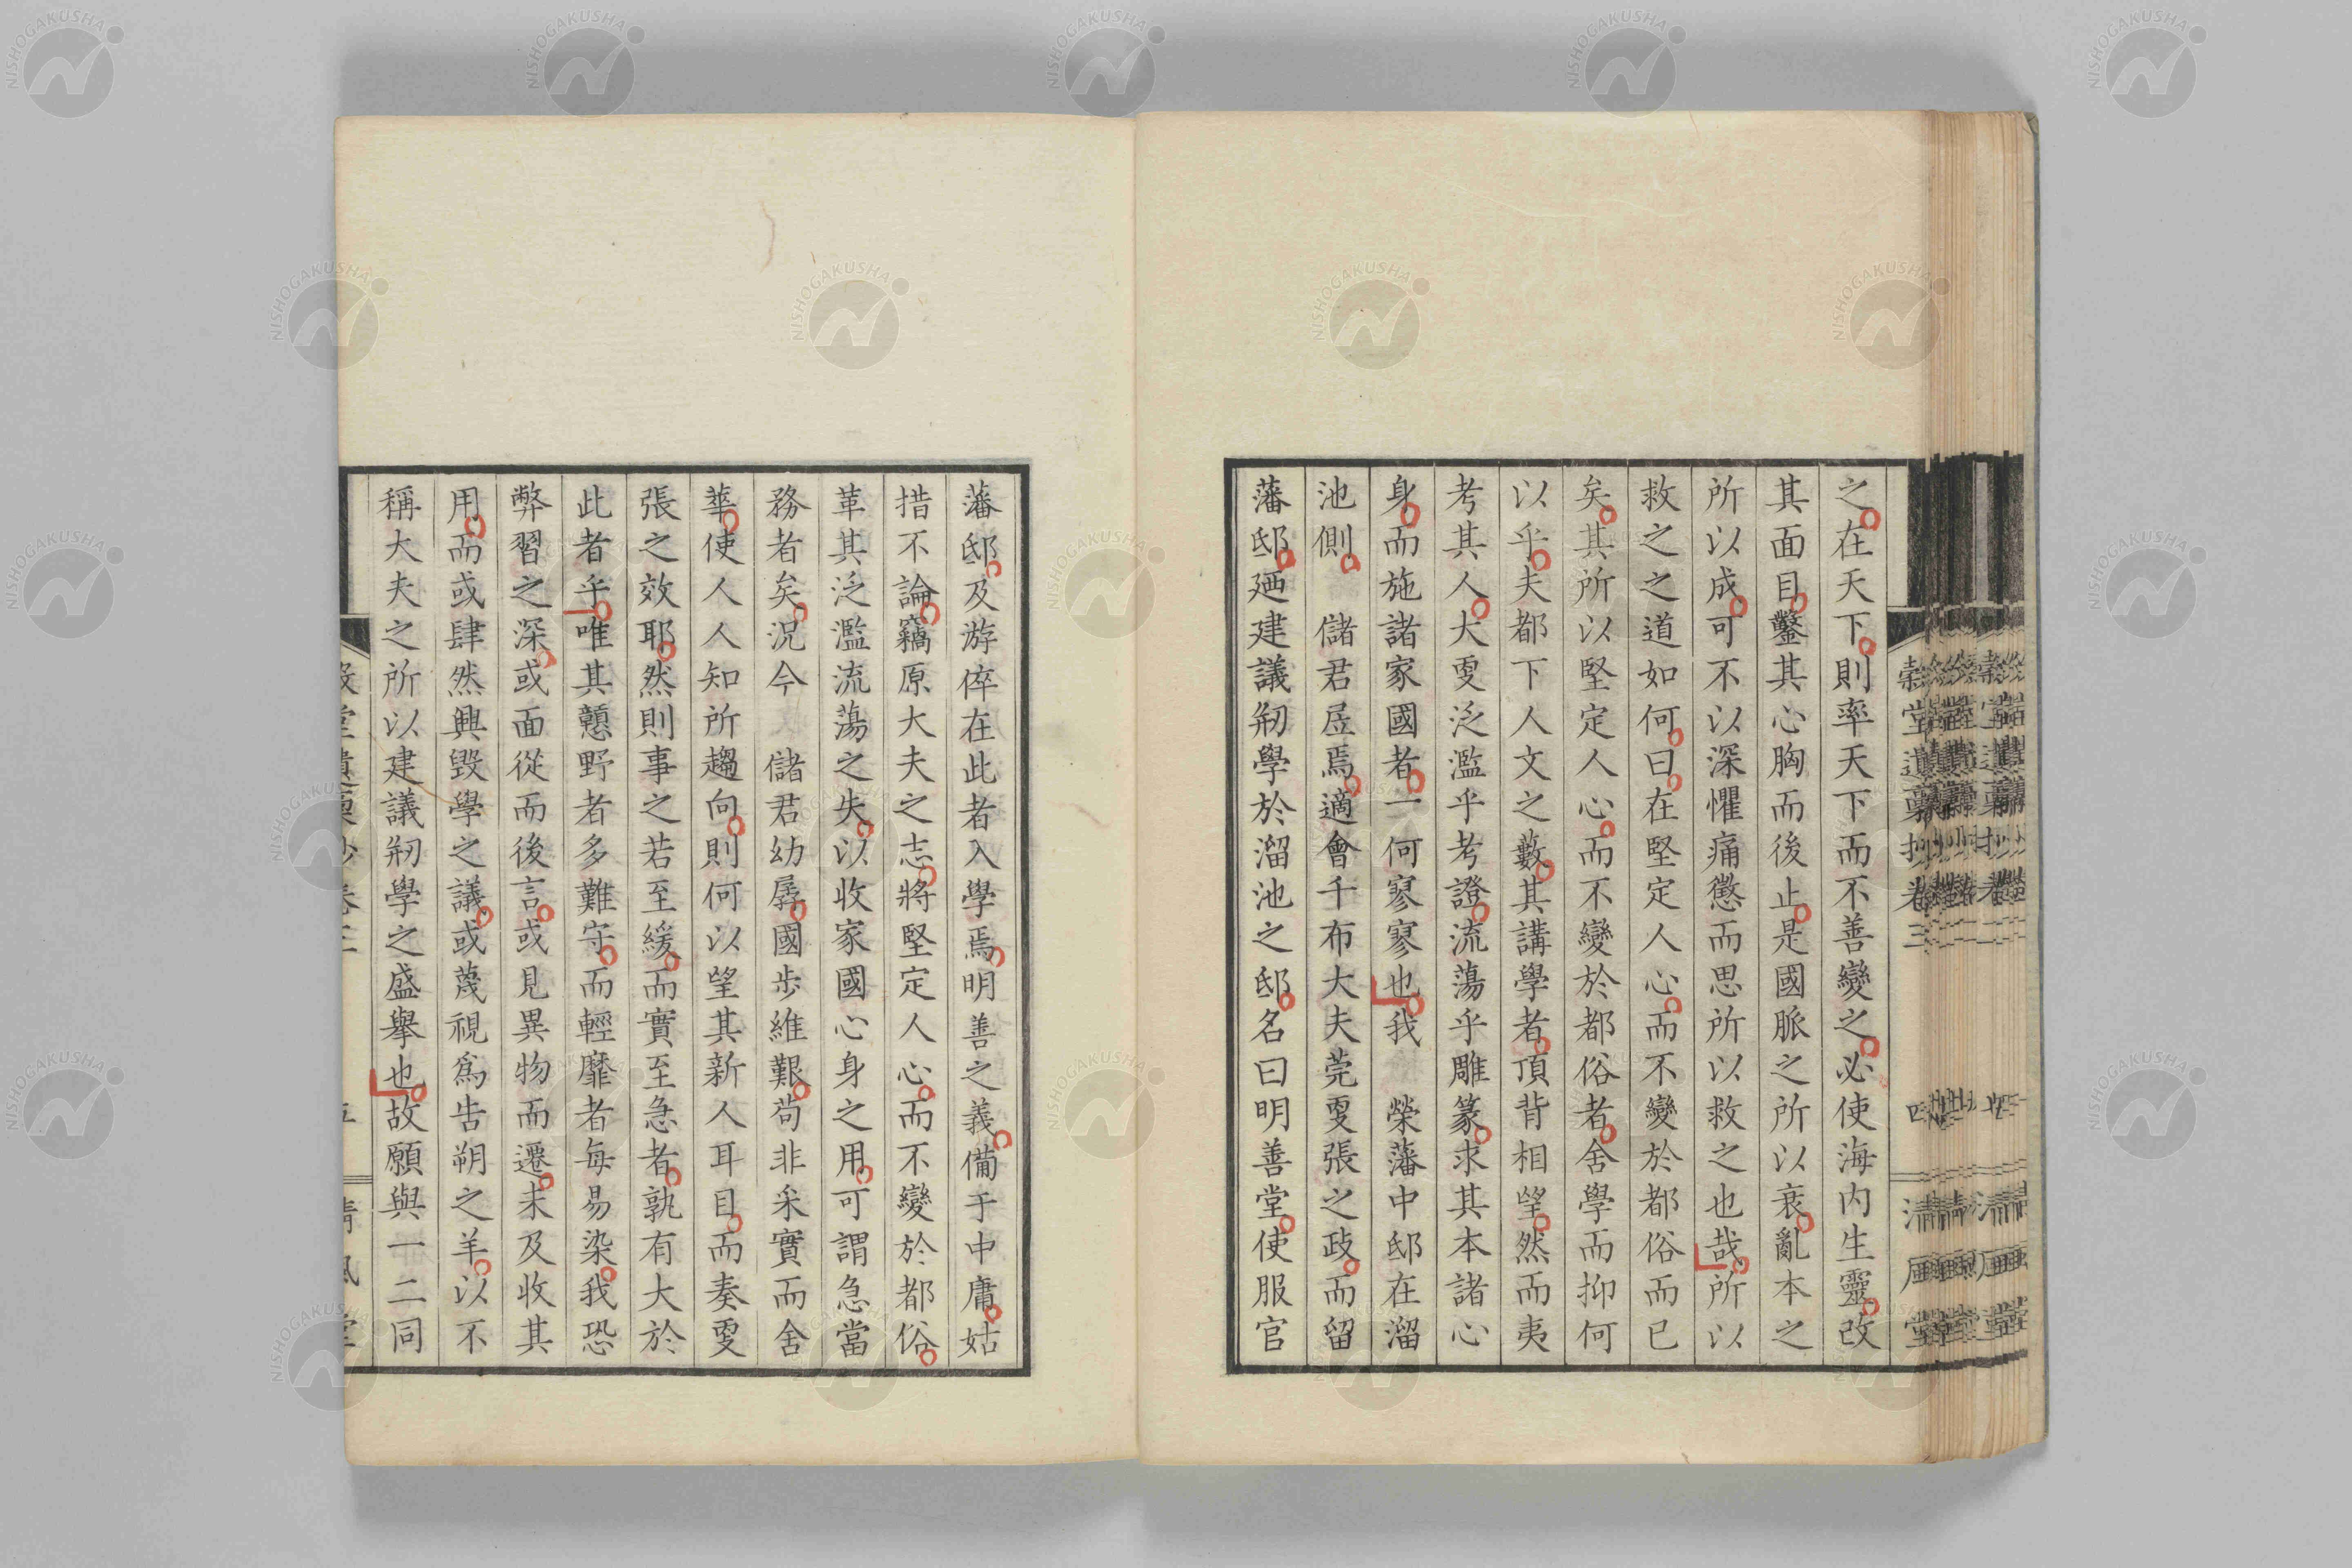 之在天下則率天下而不善變之必使海内生靈改
其面目鑿其心胸而後止是國脈之所以衰亂本之
所以成可不以深懼痛懲而思所以救之也哉所以
救之之道如何曰在堅定人心而不變於都俗而已
矣其所以堅定人心而不變於都俗者舍學而抑何
以乎夫都下人文之藪其講學者頂背相望然而夷
考其人大叓泛濫乎考證流蕩乎雕篆求其本諸心
身而施諸家國者一何寥寥也我 榮藩中邸在溜
池側 儲君居焉適會千布大夫莞叓張之政而留
藩邸廼建議剏學於溜池之邸名曰明善堂使服官
藩邸及游倅在此者入學焉明善之義備于中庸姑
措不論竊原大夫之志將堅定人心而不變於都俗
革其泛濫流蕩之失以收家國心身之用可謂急當
務者矣況今 儲君幼孱國步維艱苟非采實而舍
華使人人知所趨向則何以望其新人耳目而奏叓
張之效耶然則事之若至緩而實至急者孰有大於
此者乎唯其戇野者多難守而輕靡者每易染我恐
弊習之深或面從而後言或見異物而遷未及收其
用而或肆然興毀學之議或蔑視爲告朔之羊以不
稱大夫之所以建議剏學之盛舉也故願與一二同